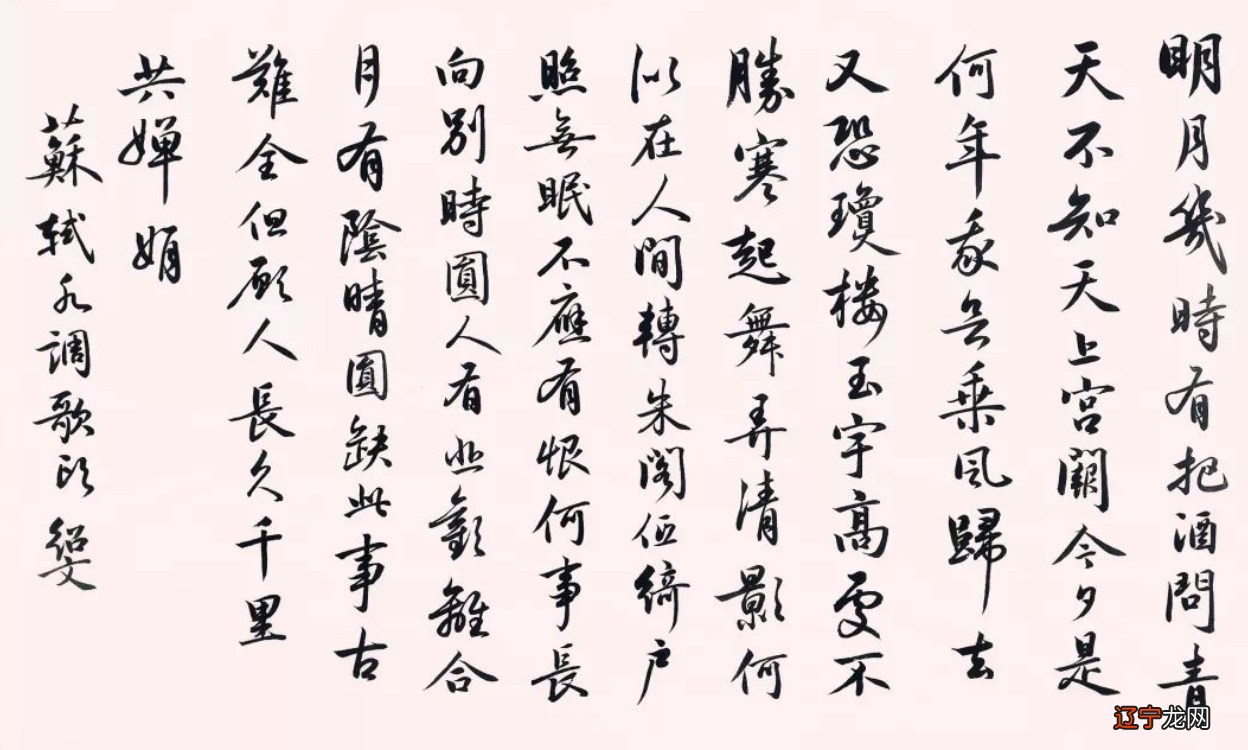 明月幾時有把酒問青
天不知天上宮闕今夕是
何年我欲乘風歸去
又恐瓊楼玉宇高處不
勝寒起舞弄清影何
似在人間轉朱閣低綺戶
照無眠不應有恨何事長
向別時圓人有悲歡離合
月有陰晴圓缺此事古
難全但願人長久千里
共嬋娟
蘇軾水調歌頭
辽宁龙网